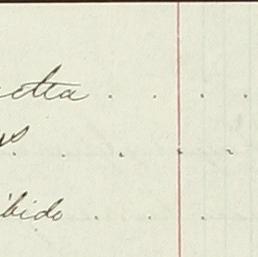 etta . . . .
us . . . .
ibido . . .